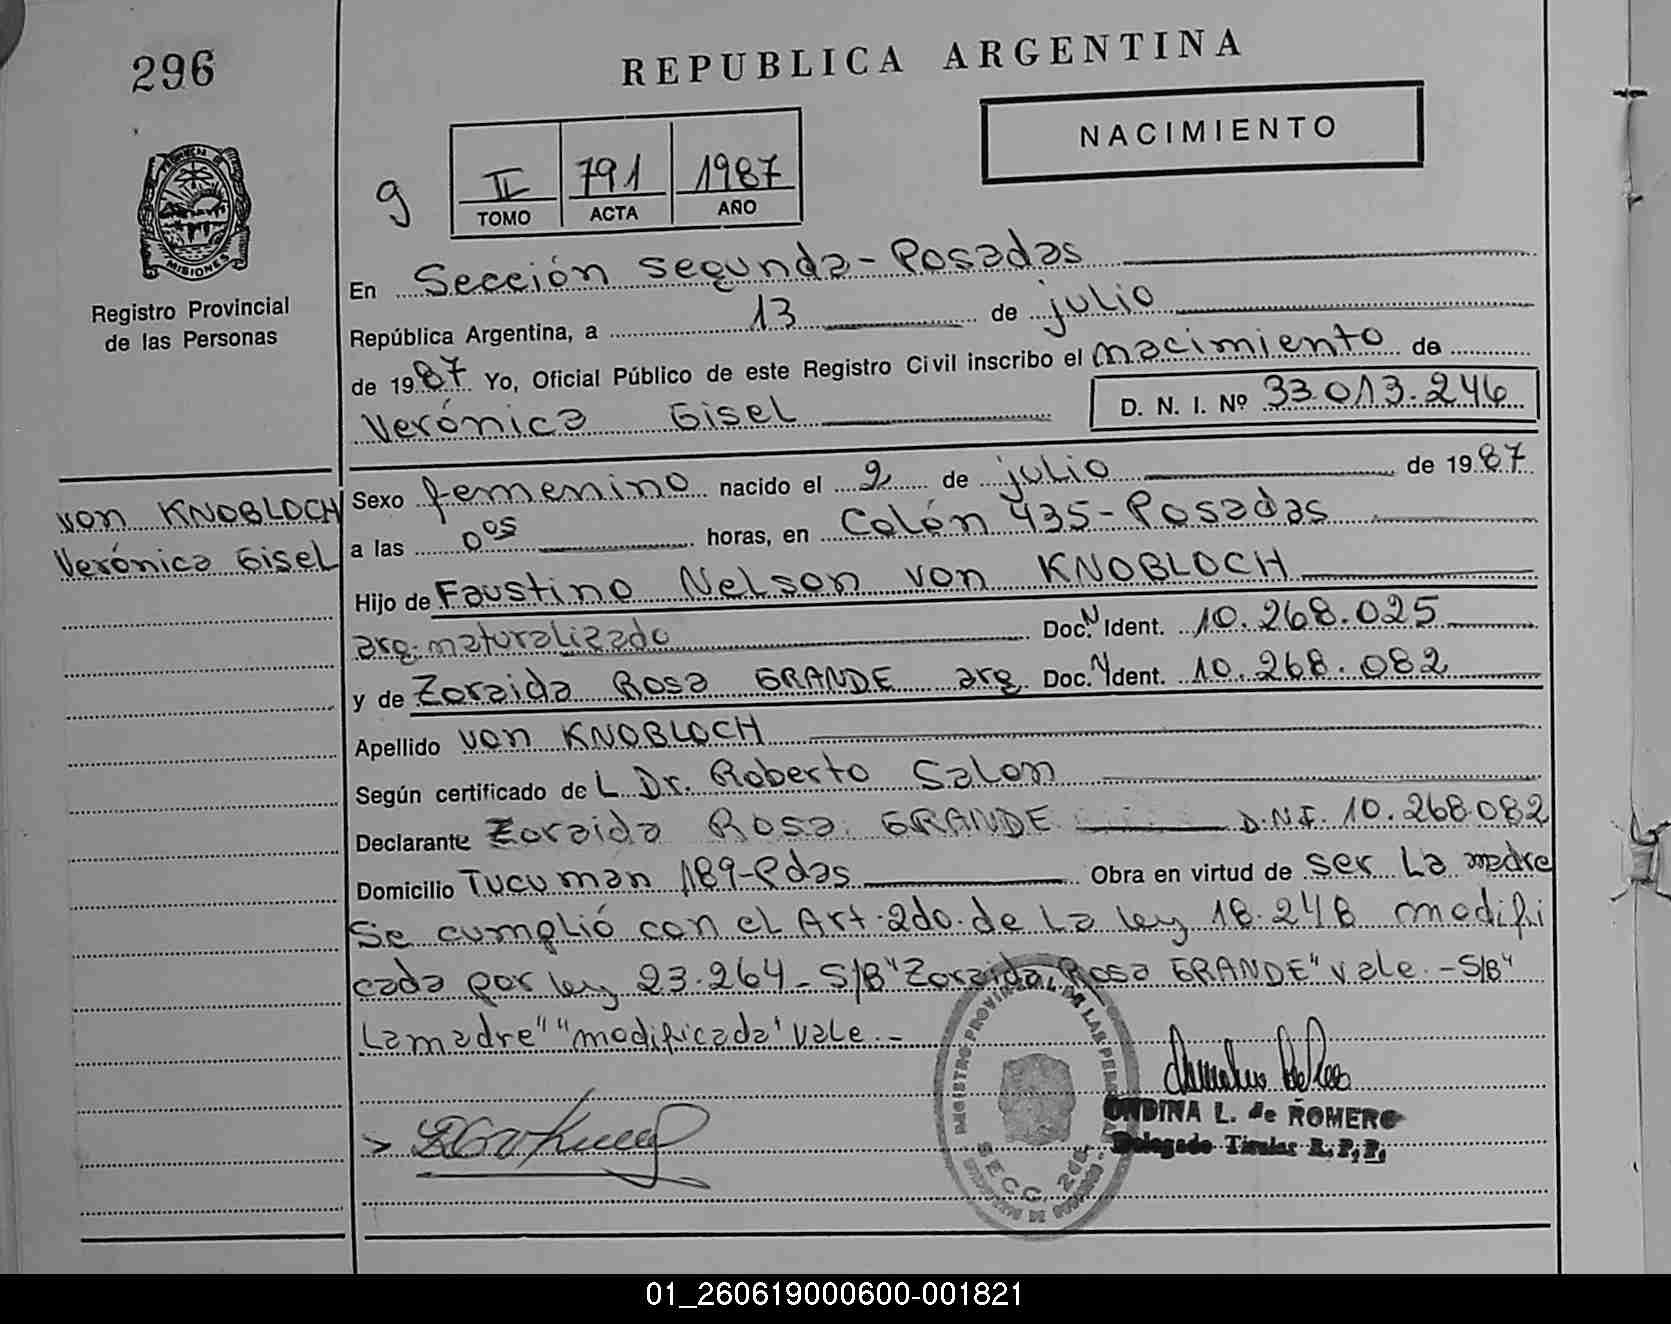 296
REPUBLICA ARGENTINA
NACIMIENTO
MISIONES
Registro Provincial
de las Personas
9
II 791 1987
TOMO ACTA AÑO
En Sección segunda - Posadas
República Argentina, a 13 de julio
de 1987 Yo, Oficial Público de este Registro Civil inscribo el nacimiento de
Verónica Gisel D. N. I. Nº 33.013.246
von KNOBLOCH
Verónica Gisel
Sexo femenino nacido el 2 de julio de 1987
a las 0 05 horas, en Colón 435 - Posadas
Hijo de Faustino Nelson von KNOBLOCH
arg. naturalizado Doc. N Ident. 10.268.025
y de Zoraida Rosa GRANDE arg. Doc. N Ident. 10.268.082
Apellido von KNOBLOCH
Según certificado de L Dr. Roberto Salom
Declarante Zoraida Rosa GRANDE D.N.I. 10.268.082
Domicilio Tucuman 189 - Pdas Obra en virtud de ser La madre
Se cumplió con el Art. 2do. de La ley 18.248 modifi
cada por ley 23.264 - S/B "Zoraida Rosa GRANDE" vale. - S/B "
La madre" "modificada" vale. -
REGISTRO PROVINCIAL DE LAS PER
SECC. 2da
L. de ROMERO
Delegado Titular R. P. P.
01_260619000600-001821